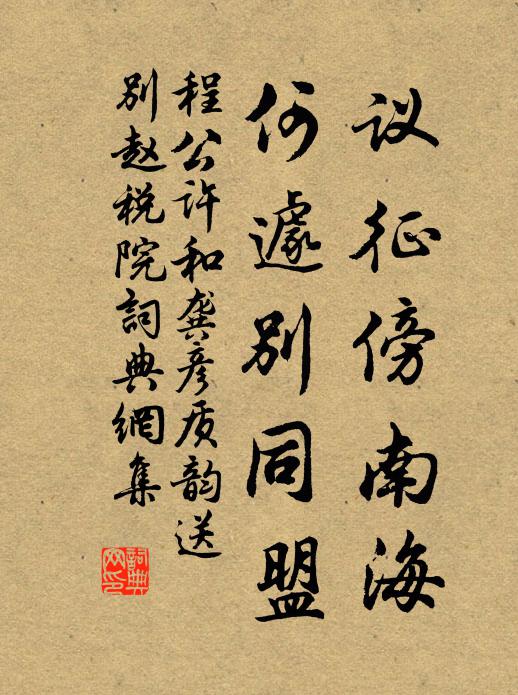 议征傍南海
何遽别同盟
程公许和龚彦质韵送
别赵税院詞典網集
詞典网印